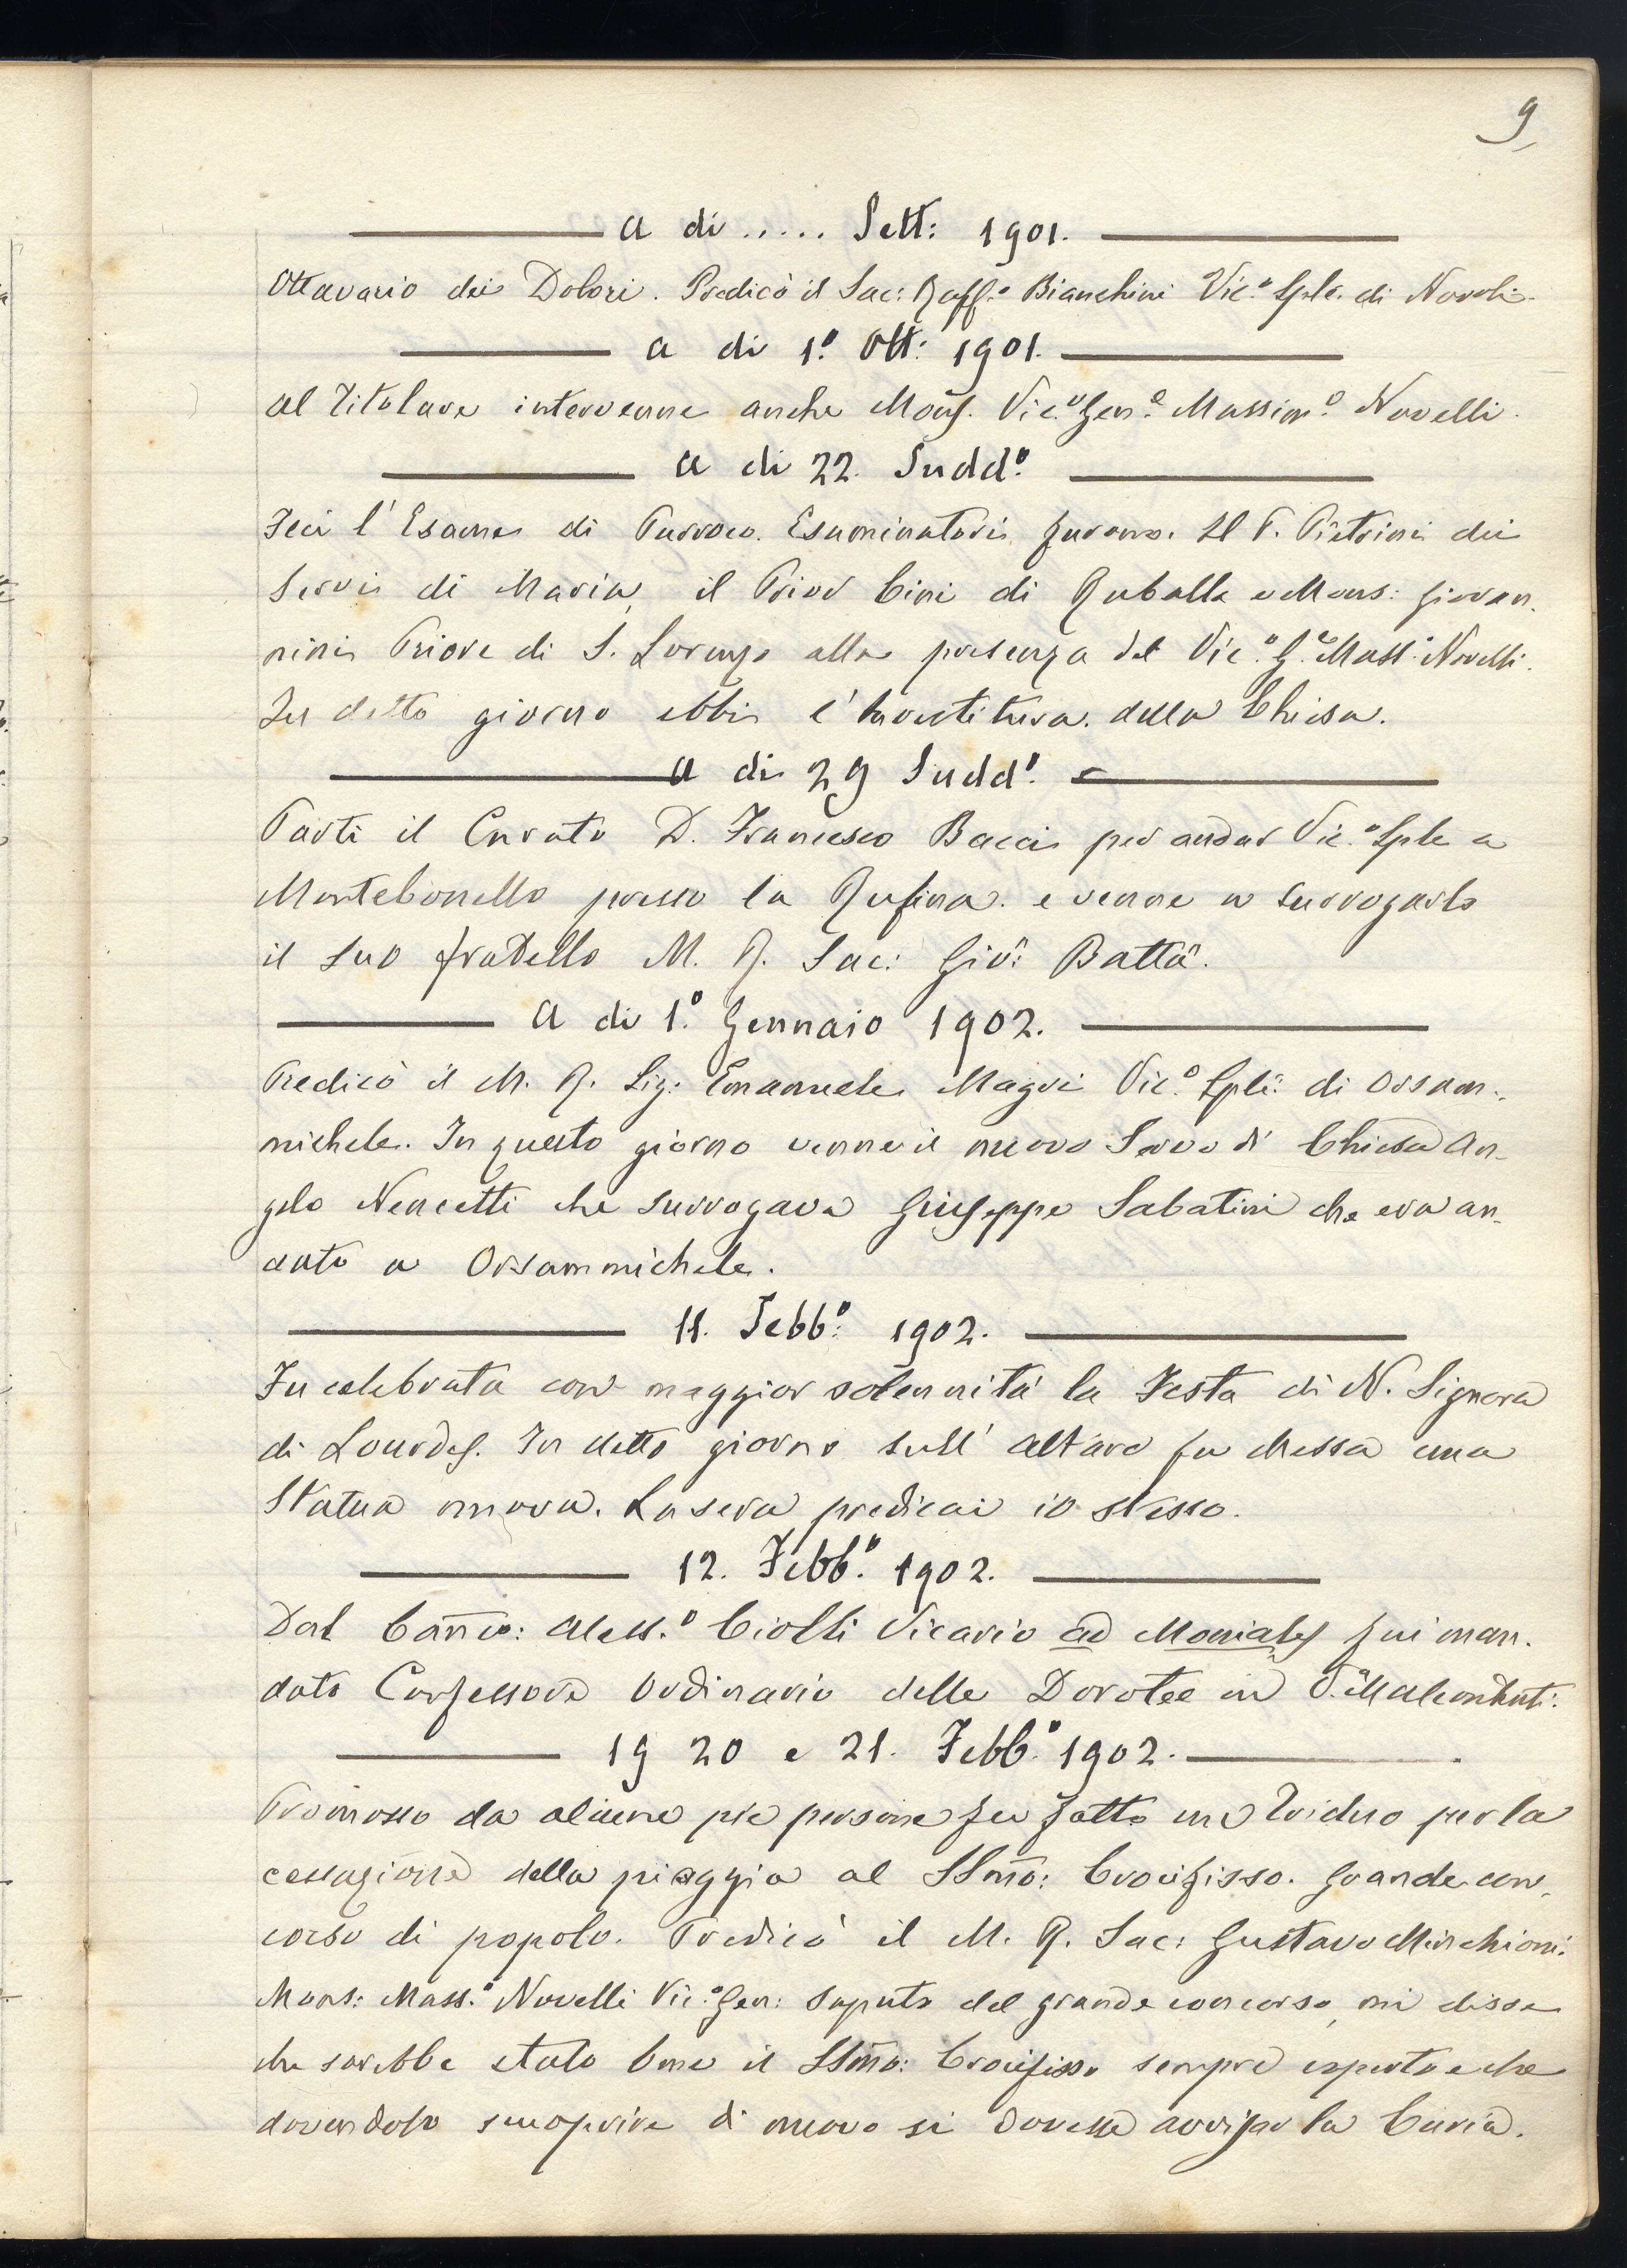 9
A di ..... Sett: 1901.
Ottavario dei Dolori. Predicò il Sac: Raff.o Bianchini Vic.o Sple. di Novoli.
A di 1.o Ott: 1901.
Al Titolare intervenne anche Mons. Vic.o Gen.e Massim.o Novelli.
A di 22. Sudd.o
Feci l'Esame di Parroco. Esaminatori furono. Il P. Pietrini dei
Servi di Maria, il Prior Cini di Ruballa e Mons: Giovan-
nini Priore di S. Lorenzo alla presenza del Vic.o G.e Mass.o Novelli.
In detto giorno ebbi l'Investitura della Chiesa.
A di 29 Sudd.o
Partì il Curato D. Francesco Bacci per andar Vic.o Sple a
Montebonello presso la Rufina e venne a surrogarlo
il suo fratello M. R. Sac: Gio: Batta.
A di 1.o Gennaio 1902.
Predicò il M. R. Sig: Emanuele Magri Vic.o Sple: di Orsam-
michele. In questo giorno venne il nuovo Servo di Chiesa An-
gelo Nencetti che surrogava Giuseppe Sabatini che era an-
dato a Orsammichele.
11. Febb.o 1902.
Fu celebrata con maggior solennità la Festa di N. Signora
di Lourdes. In detto giorno sull'altare fu messa una
Statua nuova. La sera predicai io stesso.
12. Febb.o 1902.
Dal Canco: Aless.o Ciolli Vicario ad Moniales fui man-
dato Confessore Ordinario delle Dorotee in V.a Malcontenti.
19 20 e 21. Febb.o 1902.
Promosso da alcune pie persone fu fatto un Triduo per la
cessazione della pioggia al SSmo: Crocifisso. Grande con-
corso di popolo. Predicò il M. R. Sac: Gustavo Minchioni.
Mons: Mass.o Novelli Vic.o Gen: saputo del grande concorso, mi disse
che sarebbe stato bene il SSmo: Crocifisso sempre esperto e che
dovendolo scuoprire di nuovo si dovesse avvisar la Curia.